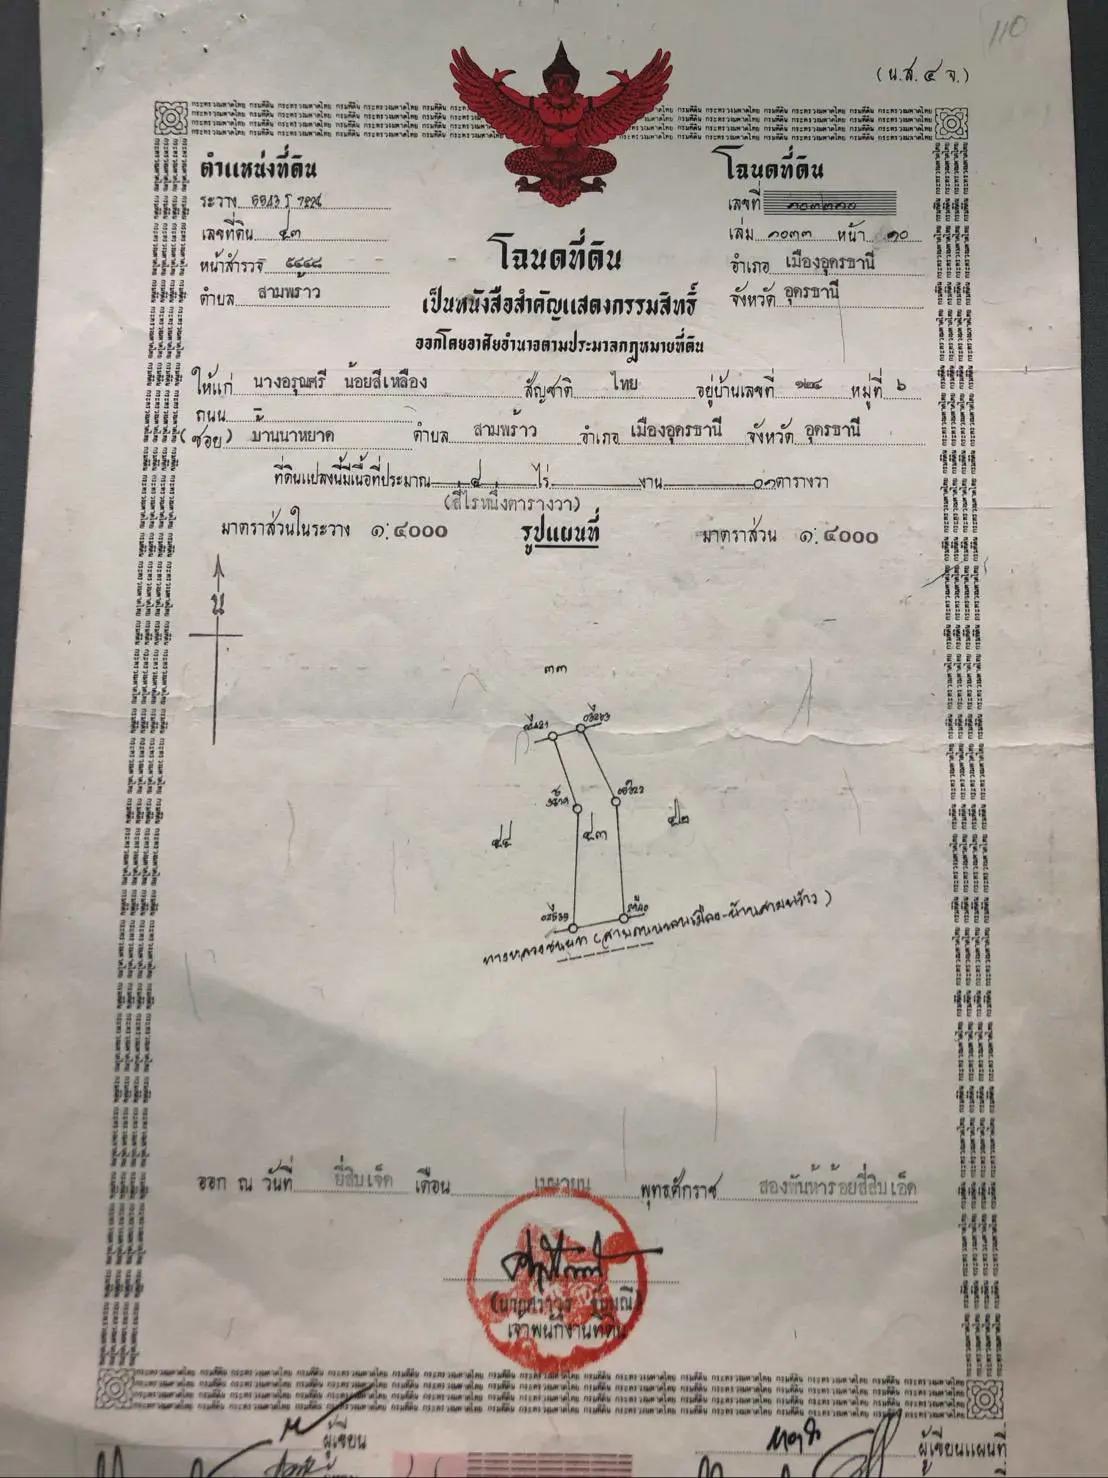 110
(น.ส.๔ จ.)
ตำแหน่งที่ดิน
โฉนดที่ดิน
ระวาง 5543 I
เลขที่
เลขที่ดิน ๔๓
เล่ม ๑๐๓๓ หน้า ๑๐
โฉนดที่ดิน
หน้าสำรวจ ๕๔๔๘
อำเภอ เมืองอุดรธานี
ตำบล สามพร้าว
เป็นหนังสือสำคัญแสดงกรรมสิทธิ์
จังหวัด อุดรธานี
ออกโดยอาศัยอำนาจตามประมวลกฎหมายที่ดิน
ให้แก่ นางอรุณศรี น้อยสีเหลือง สัญชาติ ไทย อยู่บ้านเลขที่ ๑๒๘ หมู่ที่ ๖
ถนน
(ซอย) บ้านนาหยาด ตำบล สามพร้าว อำเภอ เมืองอุดรธานี จังหวัด อุดรธานี
ที่ดินแปลงนี้มีเนื้อที่ประมาณ ๔ ไร่ งาน ๐๑ ตารางวา
(สี่ไร่หนึ่งตารางวา)
มาตราส่วนในระวาง ๑:๔๐๐๐ รูปแผนที่ มาตราส่วน ๑:๔๐๐๐
น
๓๓
๔๔ ๔๓ ๔๒
ทางหลวงชนบท (สาย
บ้านสามพร้าว)
ออก ณ วันที่ ยี่สิบเจ็ด เดือน เมษายน พุทธศักราช สองพันห้าร้อยสี่สิบเอ็ด
เจ้าพนักงานที่ดิน
ผู้เขียน
ผู้เขียนแผนที่